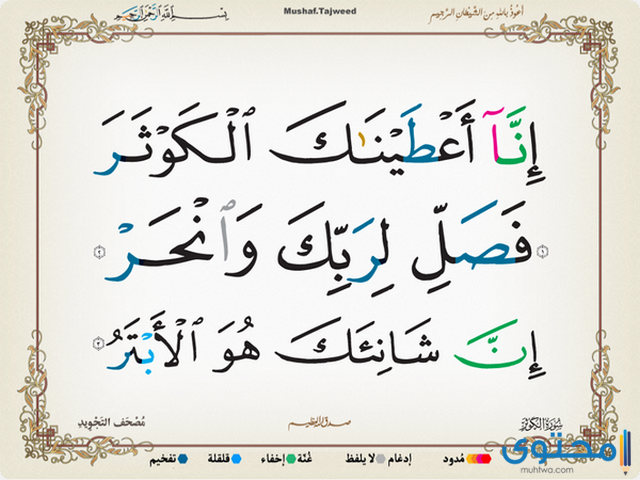 أعوذ بالله من الشيطان الرجيم
Mushaf.Tajweed
بِسْمِ ٱللَّهِ ٱلرَّحْمَٰنِ ٱلرَّحِيمِ
إِنَّآ أَعْطَيْنَٰكَ ٱلْكَوْثَرَ
١ فَصَلِّ لِرَبِّكَ وَٱنْحَرْ ٢
إِنَّ شَانِئَكَ هُوَ ٱلْأَبْتَرُ ٣
سُورَةُ الكَوْثَر
صدق الله العظيم
مُصْحَف التَجْويد
محتوى
muhtwa.com
مُدود إدغام لا يلفظ غُنّة إخفاء قلقلة تفخيم